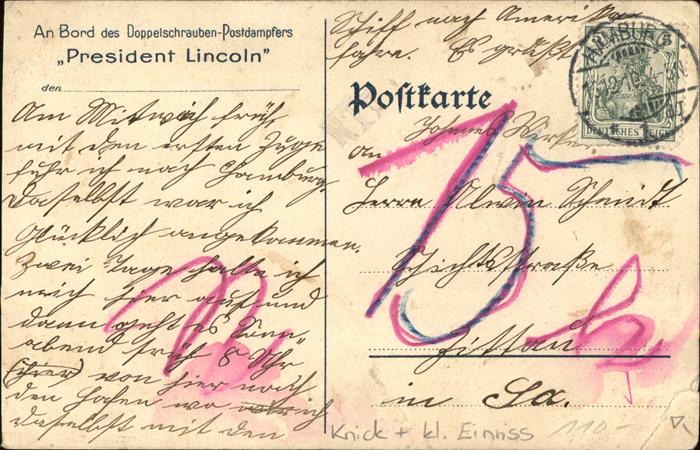 An Bord des Doppelschrauben-Postdampfers
„President Lincoln"
den
Am Mitwoch früh
mit den ersten Zuge
fuhr ich nach Hamburg
daselbst war ich
glücklich angekommen.
Zwei Tage halte ich
mich hier auf und
dann geht es Sonn-
abend früh 8 Uhr
von hier nach
den Hafen wo ich
daselbst mit den
Schiff nach Amerika
fahre. Es grüßt
Postkarte
HAMBURG 5
DEUTSCHES REICH
An
Herrn Alwin Schmidt
straße
15
Zittau
in Sa.
Knick + kl. Einriss 110.-